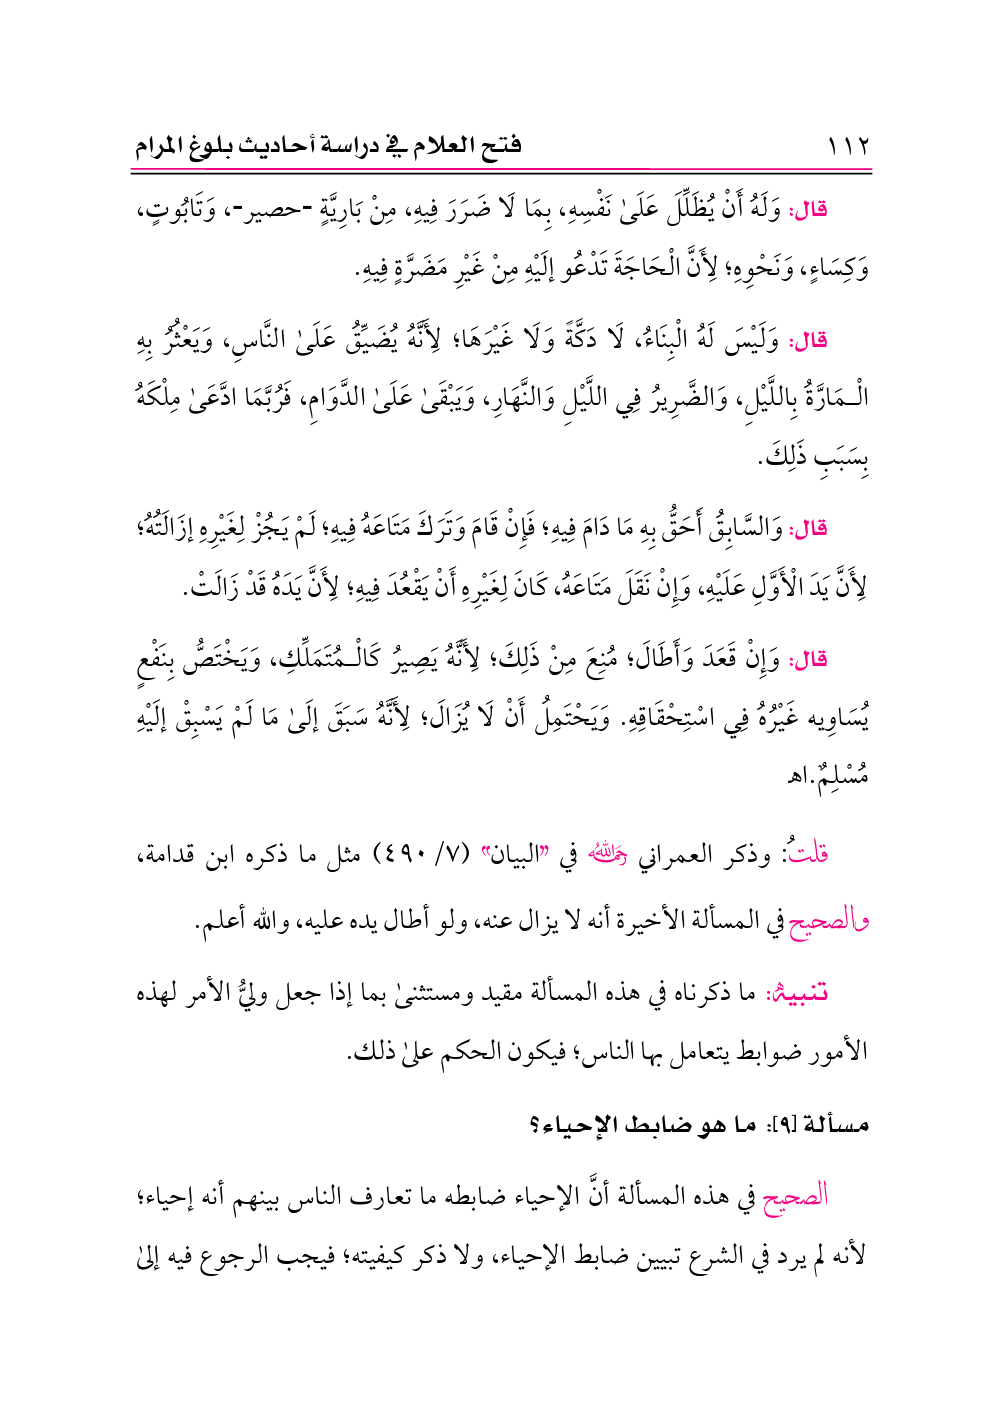 ١١٢ فتح العلام في دراسة أحاديث بلوغ المرام
قال: وَلَهُ أَنْ يُظَلِّلَ عَلَىٰ نَفْسِهِ، بِمَا لَا ضَرَرَ فِيهِ، مِنْ بَارِيَّةٍ -حصير-، وَتَابُوتٍ،
وَكِسَاءٍ، وَنَحْوِهِ؛ لِأَنَّ الْحَاجَةَ تَدْعُو إلَيْهِ مِنْ غَيْرِ مَضَرَّةٍ فِيهِ.
قال: وَلَيْسَ لَهُ الْبِنَاءُ، لَا دَكَّةً وَلَا غَيْرَهَا؛ لِأَنَّهُ يُضَيِّقُ عَلَىٰ النَّاسِ، وَيَعْثُرُ بِهِ
الْـمَارَّةُ بِاللَّيْلِ، وَالضَّرِيرُ فِي اللَّيْلِ وَالنَّهَارِ، وَيَبْقَىٰ عَلَىٰ الدَّوَامِ، فَرُبَّمَا ادَّعَىٰ مِلْكَهُ
بِسَبَبِ ذَلِكَ.
قال: وَالسَّابِقُ أَحَقُّ بِهِ مَا دَامَ فِيهِ؛ فَإِنْ قَامَ وَتَرَكَ مَتَاعَهُ فِيهِ؛ لَمْ يَجُزْ لِغَيْرِهِ إزَالَتُهُ؛
لِأَنَّ يَدَ الْأَوَّلِ عَلَيْهِ، وَإِنْ نَقَلَ مَتَاعَهُ، كَانَ لِغَيْرِهِ أَنْ يَقْعُدَ فِيهِ؛ لِأَنَّ يَدَهُ قَدْ زَالَتْ.
قال: وَإِنْ قَعَدَ وَأَطَالَ؛ مُنِعَ مِنْ ذَلِكَ؛ لِأَنَّهُ يَصِيرُ كَالْـمُتَمَلِّكِ، وَيَخْتَصُّ بِنَفْعٍ
يُسَاوِيه غَيْرُهُ فِي اسْتِحْقَاقِهِ. وَيَحْتَمِلُ أَنْ لَا يُزَالَ؛ لِأَنَّهُ سَبَقَ إلَىٰ مَا لَمْ يَسْبِقْ إلَيْهِ
مُسْلِمٌ.اﻫ
قلتُ: وذكر العمراني رحمه الله في "البيان" (٧/ ٤٩٠) مثل ما ذكره ابن قدامة،
والصحيح في المسألة الأخيرة أنه لا يزال عنه، ولو أطال يده عليه، والله أعلم.
تنبيهٌ: ما ذكرناه في هذه المسألة مقيد ومستثنىٰ بما إذا جعل وليُّ الأمر لهذه
الأمور ضوابط يتعامل بها الناس؛ فيكون الحكم علىٰ ذلك.
مسألة [٩]: ما هو ضابط الإحياء؟
الصحيح في هذه المسألة أنَّ الإحياء ضابطه ما تعارف الناس بينهم أنه إحياء؛
لأنه لم يرد في الشرع تبيين ضابط الإحياء، ولا ذكر كيفيته؛ فيجب الرجوع فيه إلىٰ